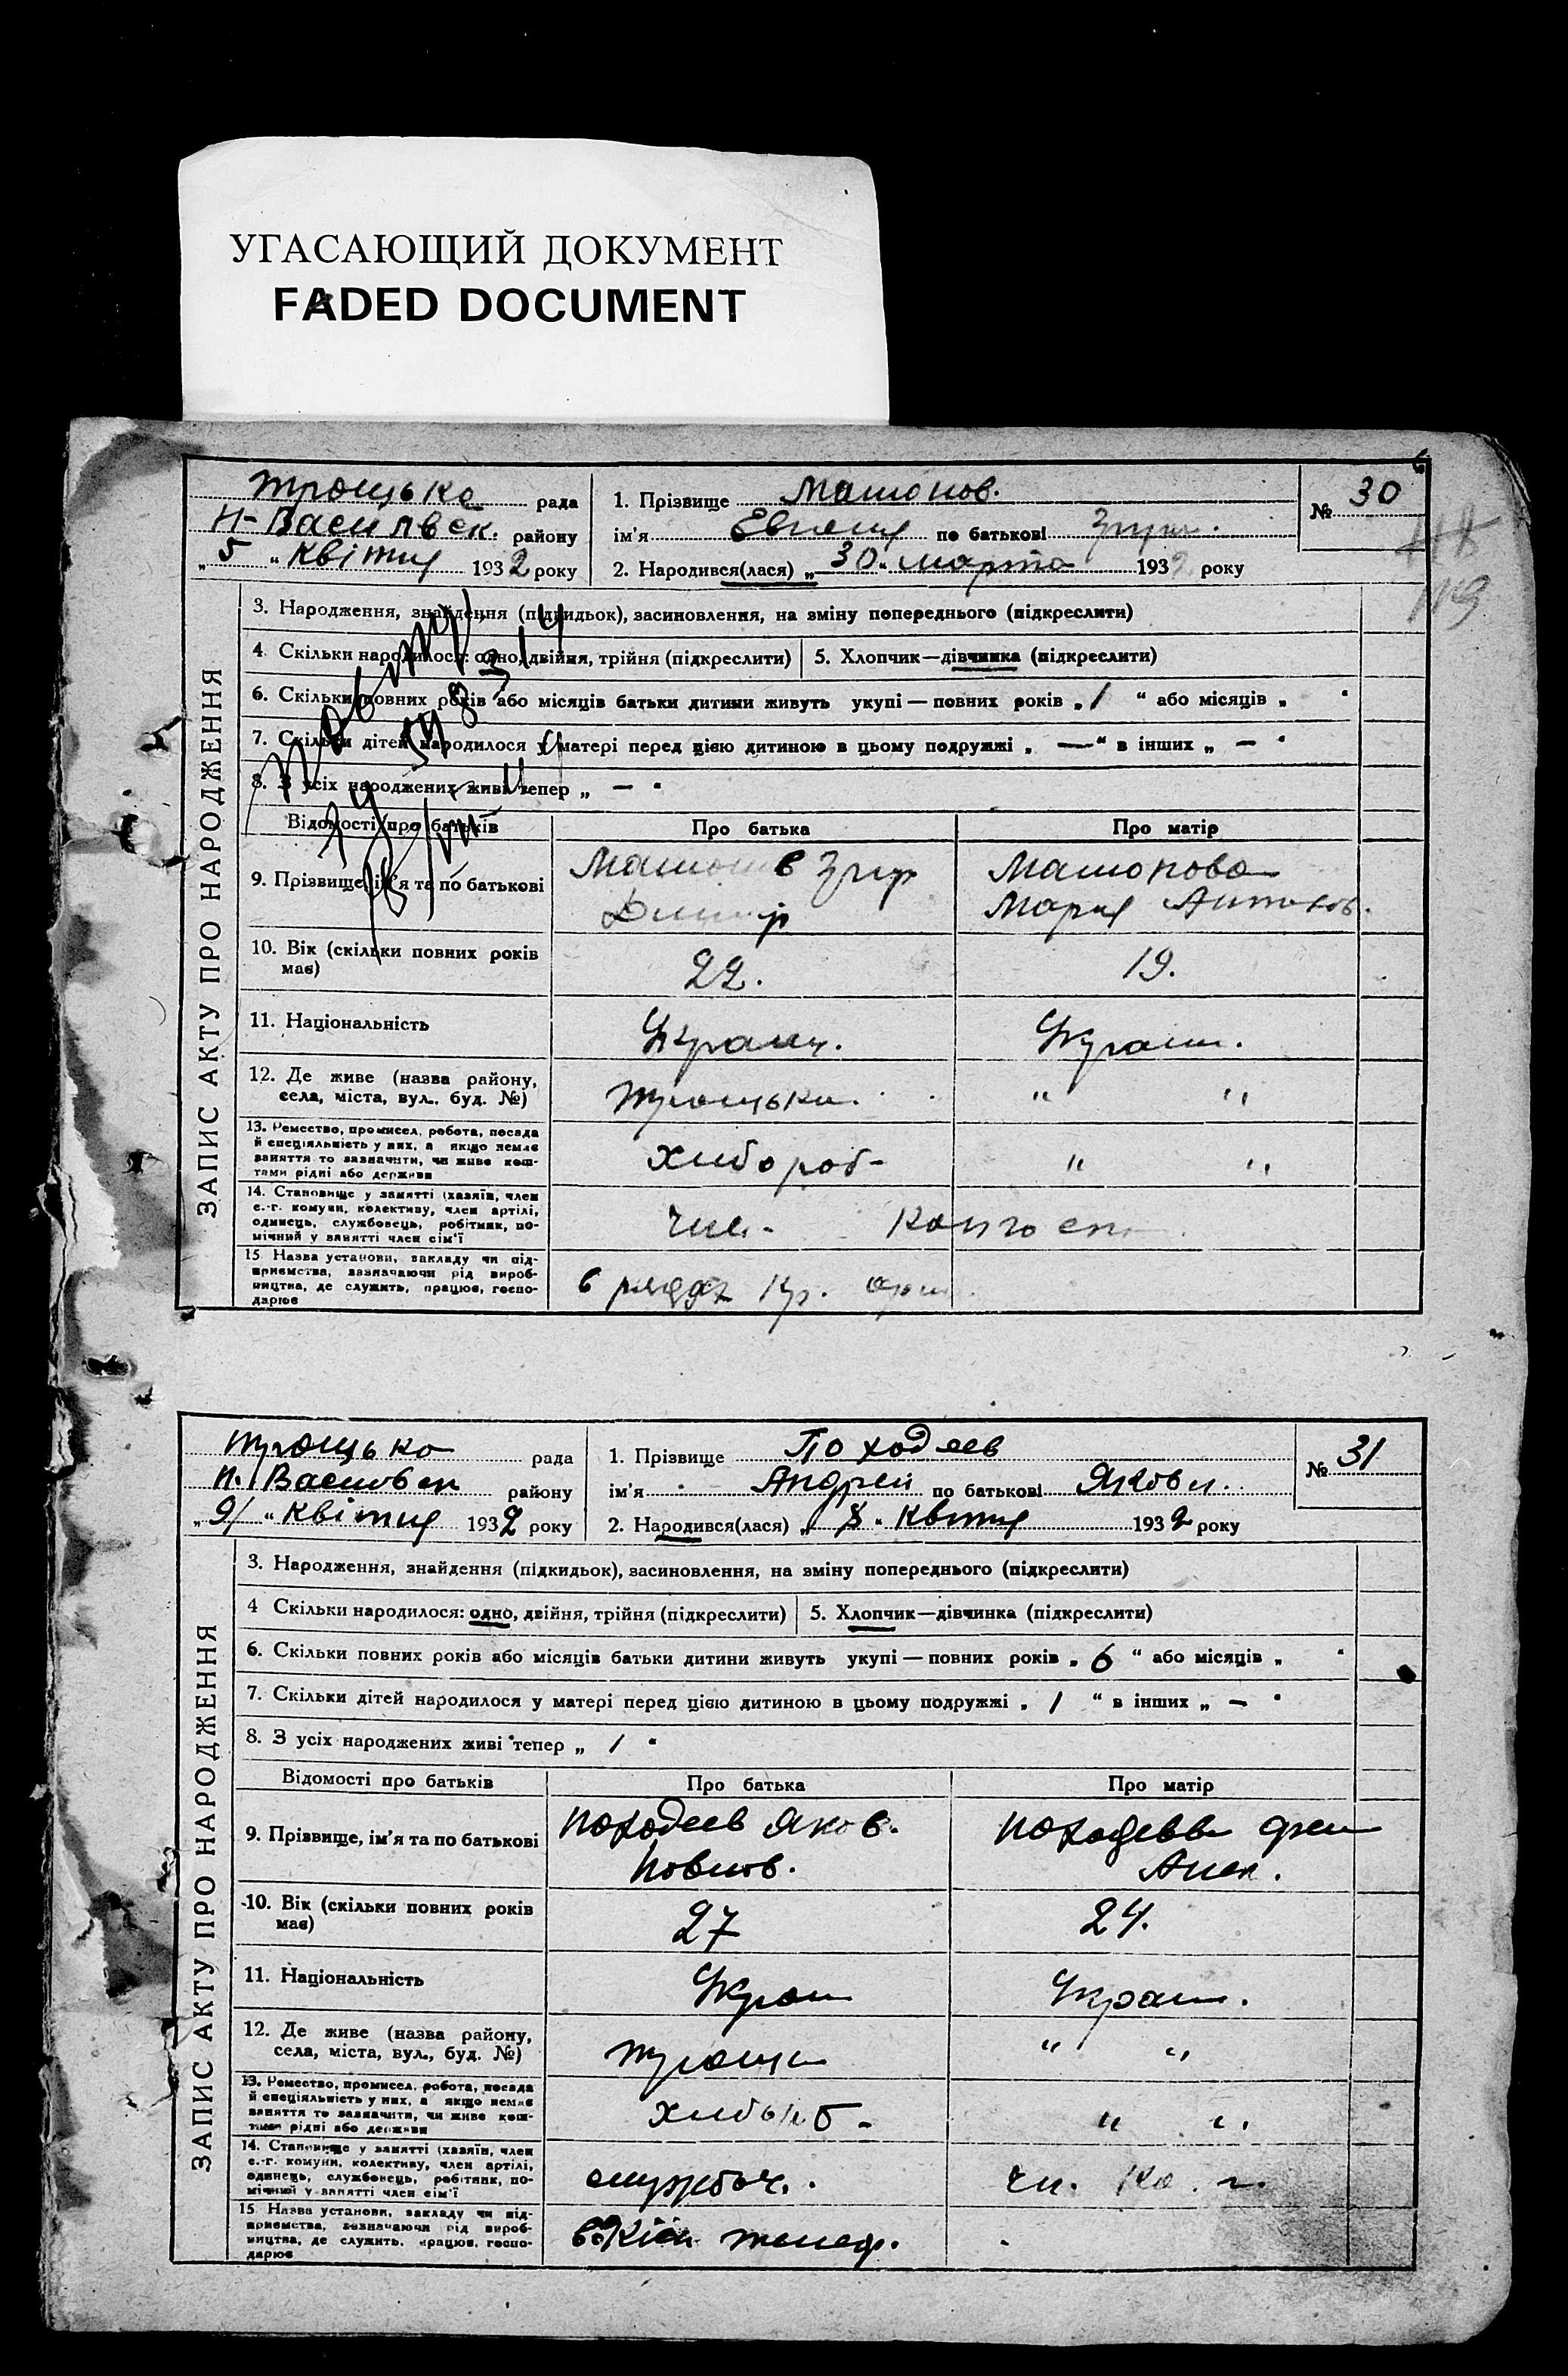 УГАСАЮЩИЙ ДОКУМЕНТ
FADED DOCUMENT
Троцько рада
Н-Васильвск. району
„ 5 “ Квітня 1932 року
1. Прізвище Машонов.
ім'я Евгения по батькові
2. Народився(лася) „ 30 “ марта 1932 року
№ 30
119
ЗАПИС АКТУ ПРО НАРОДЖЕННЯ
3. Народження, знайдення (підкидьок), засиновлення, на зміну попереднього (підкреслити)
4. Скільки народилося: одно, двійня, трійня (підкреслити)
5. Хлопчик—дівчинка (підкреслити)
6. Скільки повних років або місяців батьки дитини живуть укупі — повних років „ 1 “ або місяців „ “
7. Скільки дітей народилося у матері перед цією дитиною в цьому подружжі „ — “ в інших „ — “
8. З усіх народжених живі тепер „ — “
Відомості про батьків
Про батька
Про матір
9. Прізвище, ім'я та по батькові
Машонов Згир
Машонова
Мария Антонов.
10. Вік (скільки повних років
має)
22.
19.
11. Національність
Украин.
Украин.
12. Де живе (назва району,
села, міста, вул., буд. №)
Троцьки.
“ “
13. Ремество, промисел, робота, посада
й спеціяльність у них, а якщо немає
заняття то зазначити, чи живе кош-
тами рідні або держави
Хлибороб-
“ “
14. Становище у занятті (хазяїн, член
с.-г. комуни, колективу, член артілі,
одинець, службовець, робітник, по-
мічний у занятті член сім'ї
член. колгосп.
15. Назва установи, закладу чи під-
приємства, зазначаючи рід вироб-
ництва, де служить, працює, госпо-
дарює
в рядах Кр. арм.
Троцько рада
Н. Василвск району
„ 9 “ Квітня 1932 року
1. Прізвище Походяев
ім'я Андрей по батькові Якови.
2. Народився(лася) „ 8 “ Квітня 1932 року
№ 31
ЗАПИС АКТУ ПРО НАРОДЖЕННЯ
3. Народження, знайдення (підкидьок), засиновлення, на зміну попереднього (підкреслити)
4 Скільки народилося: одно, двійня, трійня (підкреслити)
5. Хлопчик—дівчинка (підкреслити)
6. Скільки повних років або місяців батьки дитини живуть укупі — повних років „ 6 “ або місяців „ “
7. Скільки дітей народилося у матері перед цією дитиною в цьому подружжі „ 1 “ в інших „ — “
8. З усіх народжених живі тепер „ 1 “
Відомості про батьків
Про батька
Про матір
9. Прізвище, ім'я та по батькові
Походеев Яков.
Павлов.
Походеева
Алек.
10. Вік (скільки повних років
має)
27
24.
11. Національність
Украин
Украин.
12. Де живе (назва району,
села, міста, вул., буд. №)
Троцьки
“ “
13. Ремество, промисел, робота, посада
й спеціяльність у них, а якщо немає
заняття то зазначити, чи живе кош-
тами рідні або держави
Хлибороб-
“ “
14. Становище у занятті (хазяїн, член
с.-г. комуни, колективу, член артілі,
одинець, службовець, робітник, по-
мічний у занятті член сім'ї
службов.
чл. Ко. г.
15 Назва установи, закладу чи під-
приємства, зазначаючи рід вироб-
ництва, де служить, працює, госпо-
дарює
телеф.